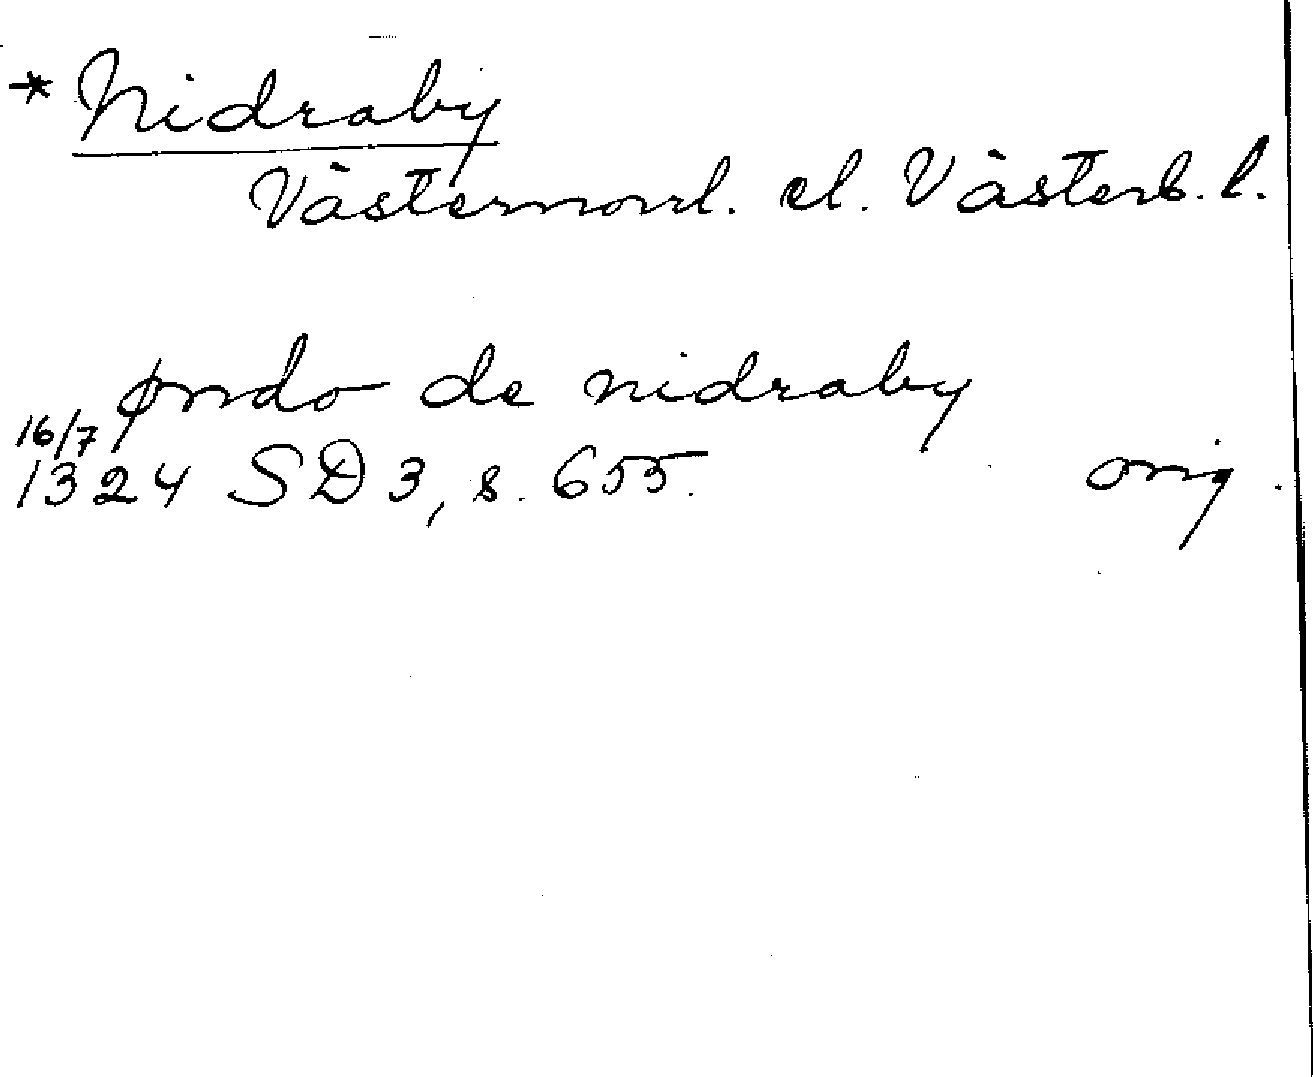 * Nidraby
Västernorrl. el. Västerb. l.
øndo de nidraby
16/7
1324 SD 3, s. 655. orig.